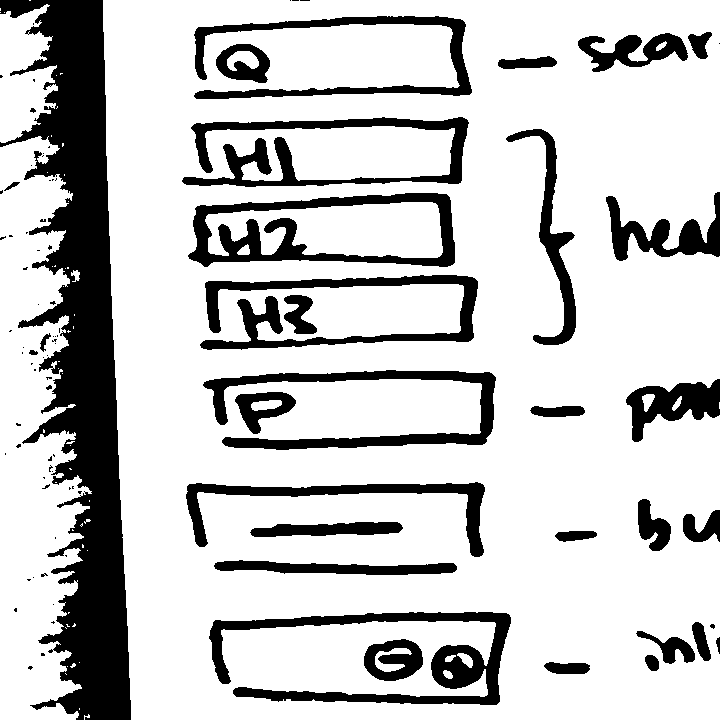 Q — sear
H1
H2 head
H3
P — par
— bu
— inli